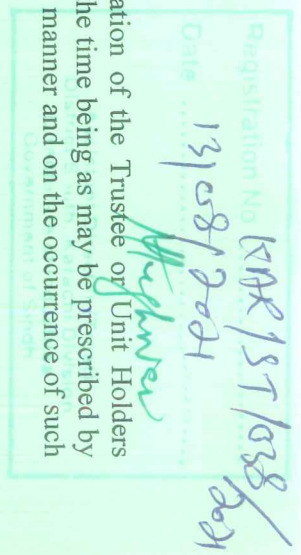 Registration No. KAR/ST/038/2021
Date 13/08/2021
Government of Sindh
ation of the Trustee or Unit Holders
he time being as may be prescribed by
manner and on the occurrence of such